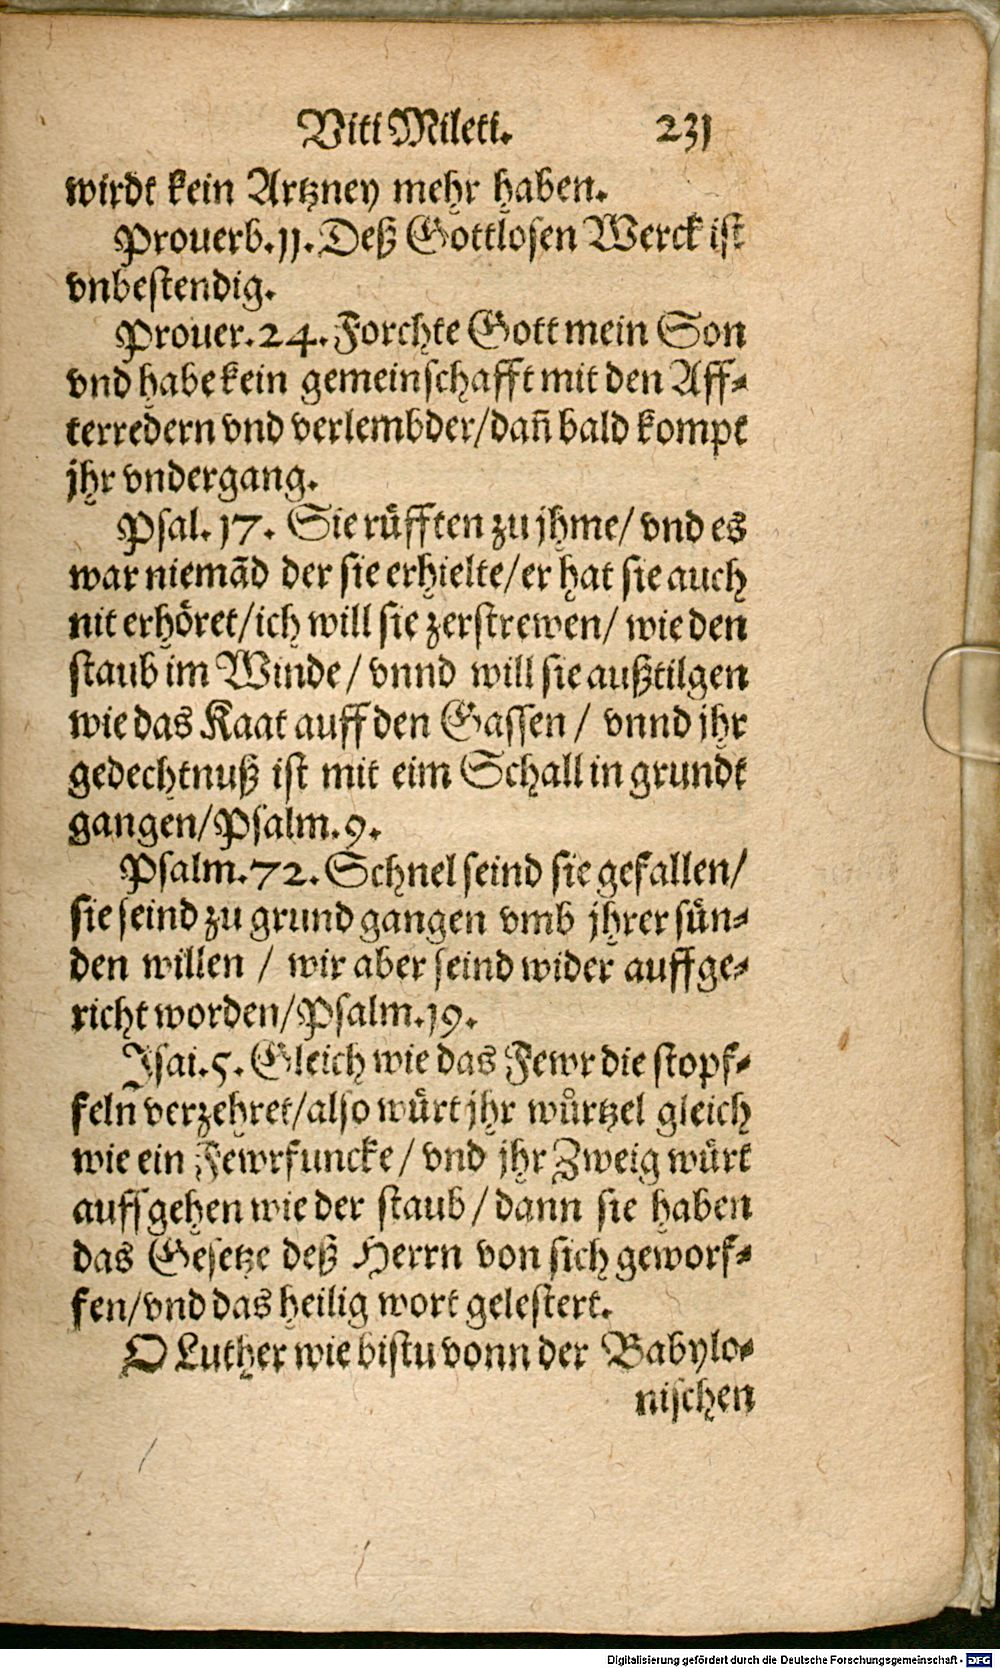 Viti Mileti. 231
wirdt kein Artzney mehr haben.
Prouerb. 11. Deß Gottlosen Werck ist
vnbestendig.
Prouer. 24. Forchte Gott mein Son
vnd habe kein gemeinschafft mit den Aff-
terredern vnd verlembder/dan̄ bald kompt
jhr vndergang.
Psal. 17. Sie rüfften zu jhme/ vnd es
war niemãd der sie erhielte/er hat sie auch
nit erhöret/ich will sie zerstrewen/ wie den
staub im Winde/ vnnd will sie außtilgen
wie das Kaat auff den Gassen/ vnnd jhr
gedechtnuß ist mit eim Schall in grundt
gangen/Psalm. 9.
Psalm. 72. Schnel seind sie gefallen/
sie seind zu grund gangen vmb jhrer sün-
den willen / wir aber seind wider auffge-
richt worden/Psalm. 19.
Isai. 5. Gleich wie das Fewr die stopf-
feln verzehret/also würt jhr wůrtzel gleich
wie ein Fewrfuncke/ vnd jhr Zweig würt
auffgehen wie der staub/ dann sie haben
das Gesetze deß Herrn von sich geworf-
fen/vnd das heilig wort gelestert.
O Luther wie bistu vonn der Babylo-
nischen
Digitalisierung gefördert durch die Deutsche Forschungsgemeinschaft - DFG